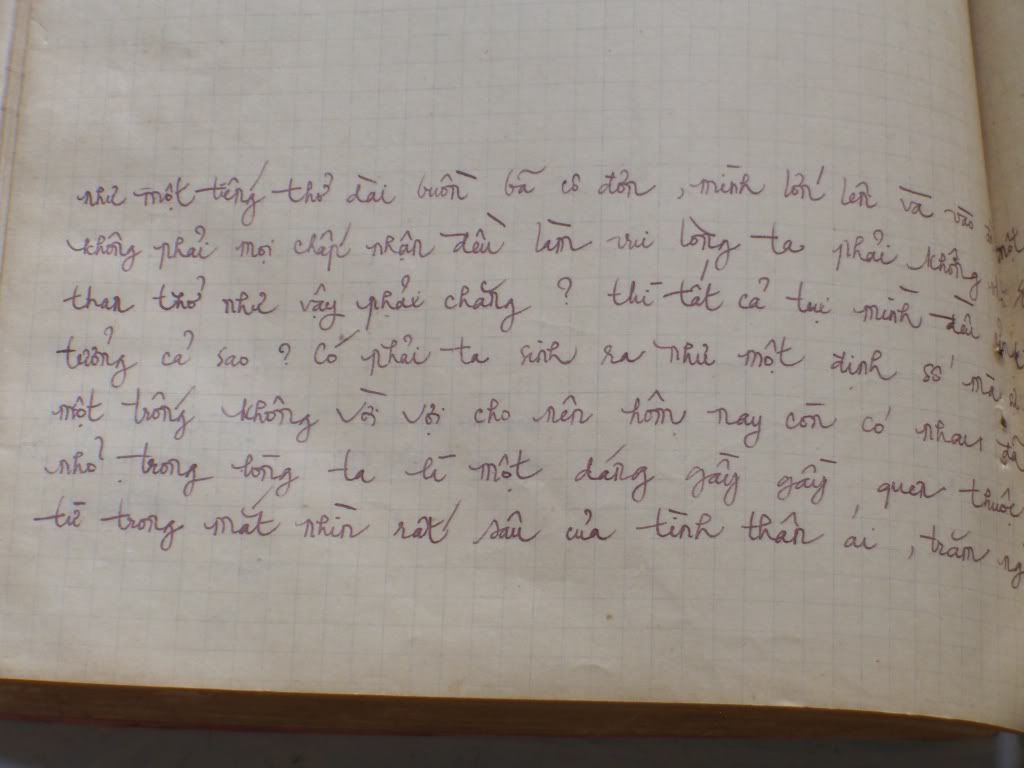 như một tiếng thở dài buồn bã cô đơn, mình lớn lên và vào
không phải mọi chấp nhận đều làm vui lòng ta phải không
than thở như vậy phải chăng ? thì tất cả tụi mình đều
tưởng cả sao ? Có phải ta sinh ra như một định số mà
một trống không vời vợi cho nên hôm nay còn có nhau, đã
nhỏ trong lòng ta lì một dáng gầy gầy quen thuộc
từ trong mắt nhìn rất sâu của tình thân ái, trăm